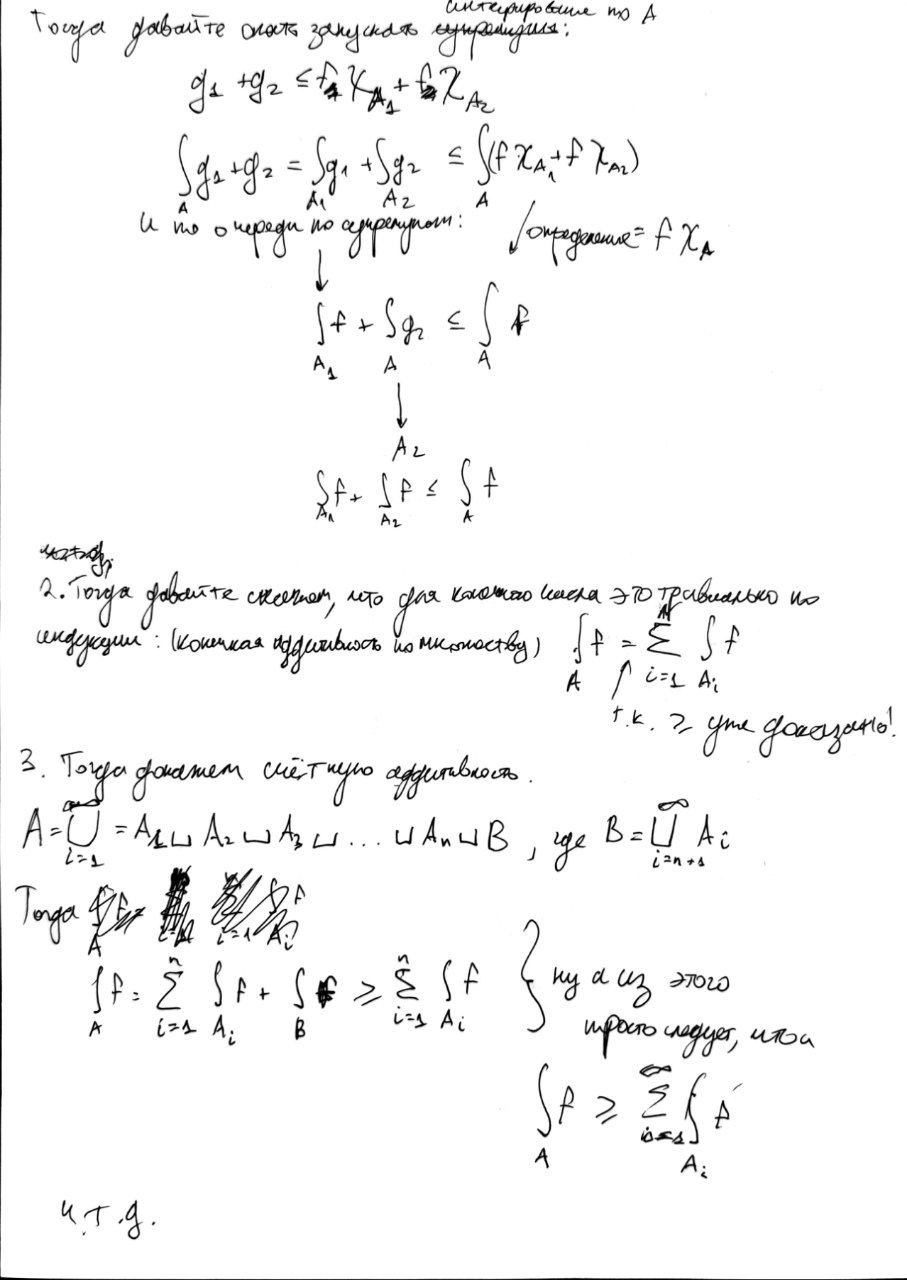 интегрирование по A
Тогда давайте опять запускать супремумы:
g₁ + g₂ ≤ f χ_{A₁} + f χ_{A₂}
∫_A g₁ + g₂ = ∫_{A₁} g₁ + ∫_{A₂} g₂ ≤ ∫_A (f χ_{A₁} + f χ_{A₂})
и по очереди по супремумам: ↓ определение = f χ_A
↓
∫_{A₁} f + ∫_A g₂ ≤ ∫_A f
↓
A₂
∫_{A₁} f + ∫_{A₂} f ≤ ∫_A f
2. Тогда давайте скажем, что для конечного числа это тривиально по
индукции: (конечная аддитивность по множеству) ∫_A f = Σ_{i=1}^{N} ∫_{A_i} f
↑ т.к. ≥ уже доказано!
3. Тогда докажем счётную аддитивность.
A = ⨆_{i=1}^{∞} = A₁ ⊔ A₂ ⊔ A₃ ⊔ ... ⊔ A_n ⊔ B , где B = ⨆_{i=n+1}^{∞} A_i
Тогда
∫_A f = Σ_{i=1}^{n} ∫_{A_i} f + ∫_B f ≥ Σ_{i=1}^{n} ∫_{A_i} f } ну а из этого
просто следует, что
∫_A f ≥ Σ_{i=1}^{∞} ∫_{A_i} f
ч.т.д.